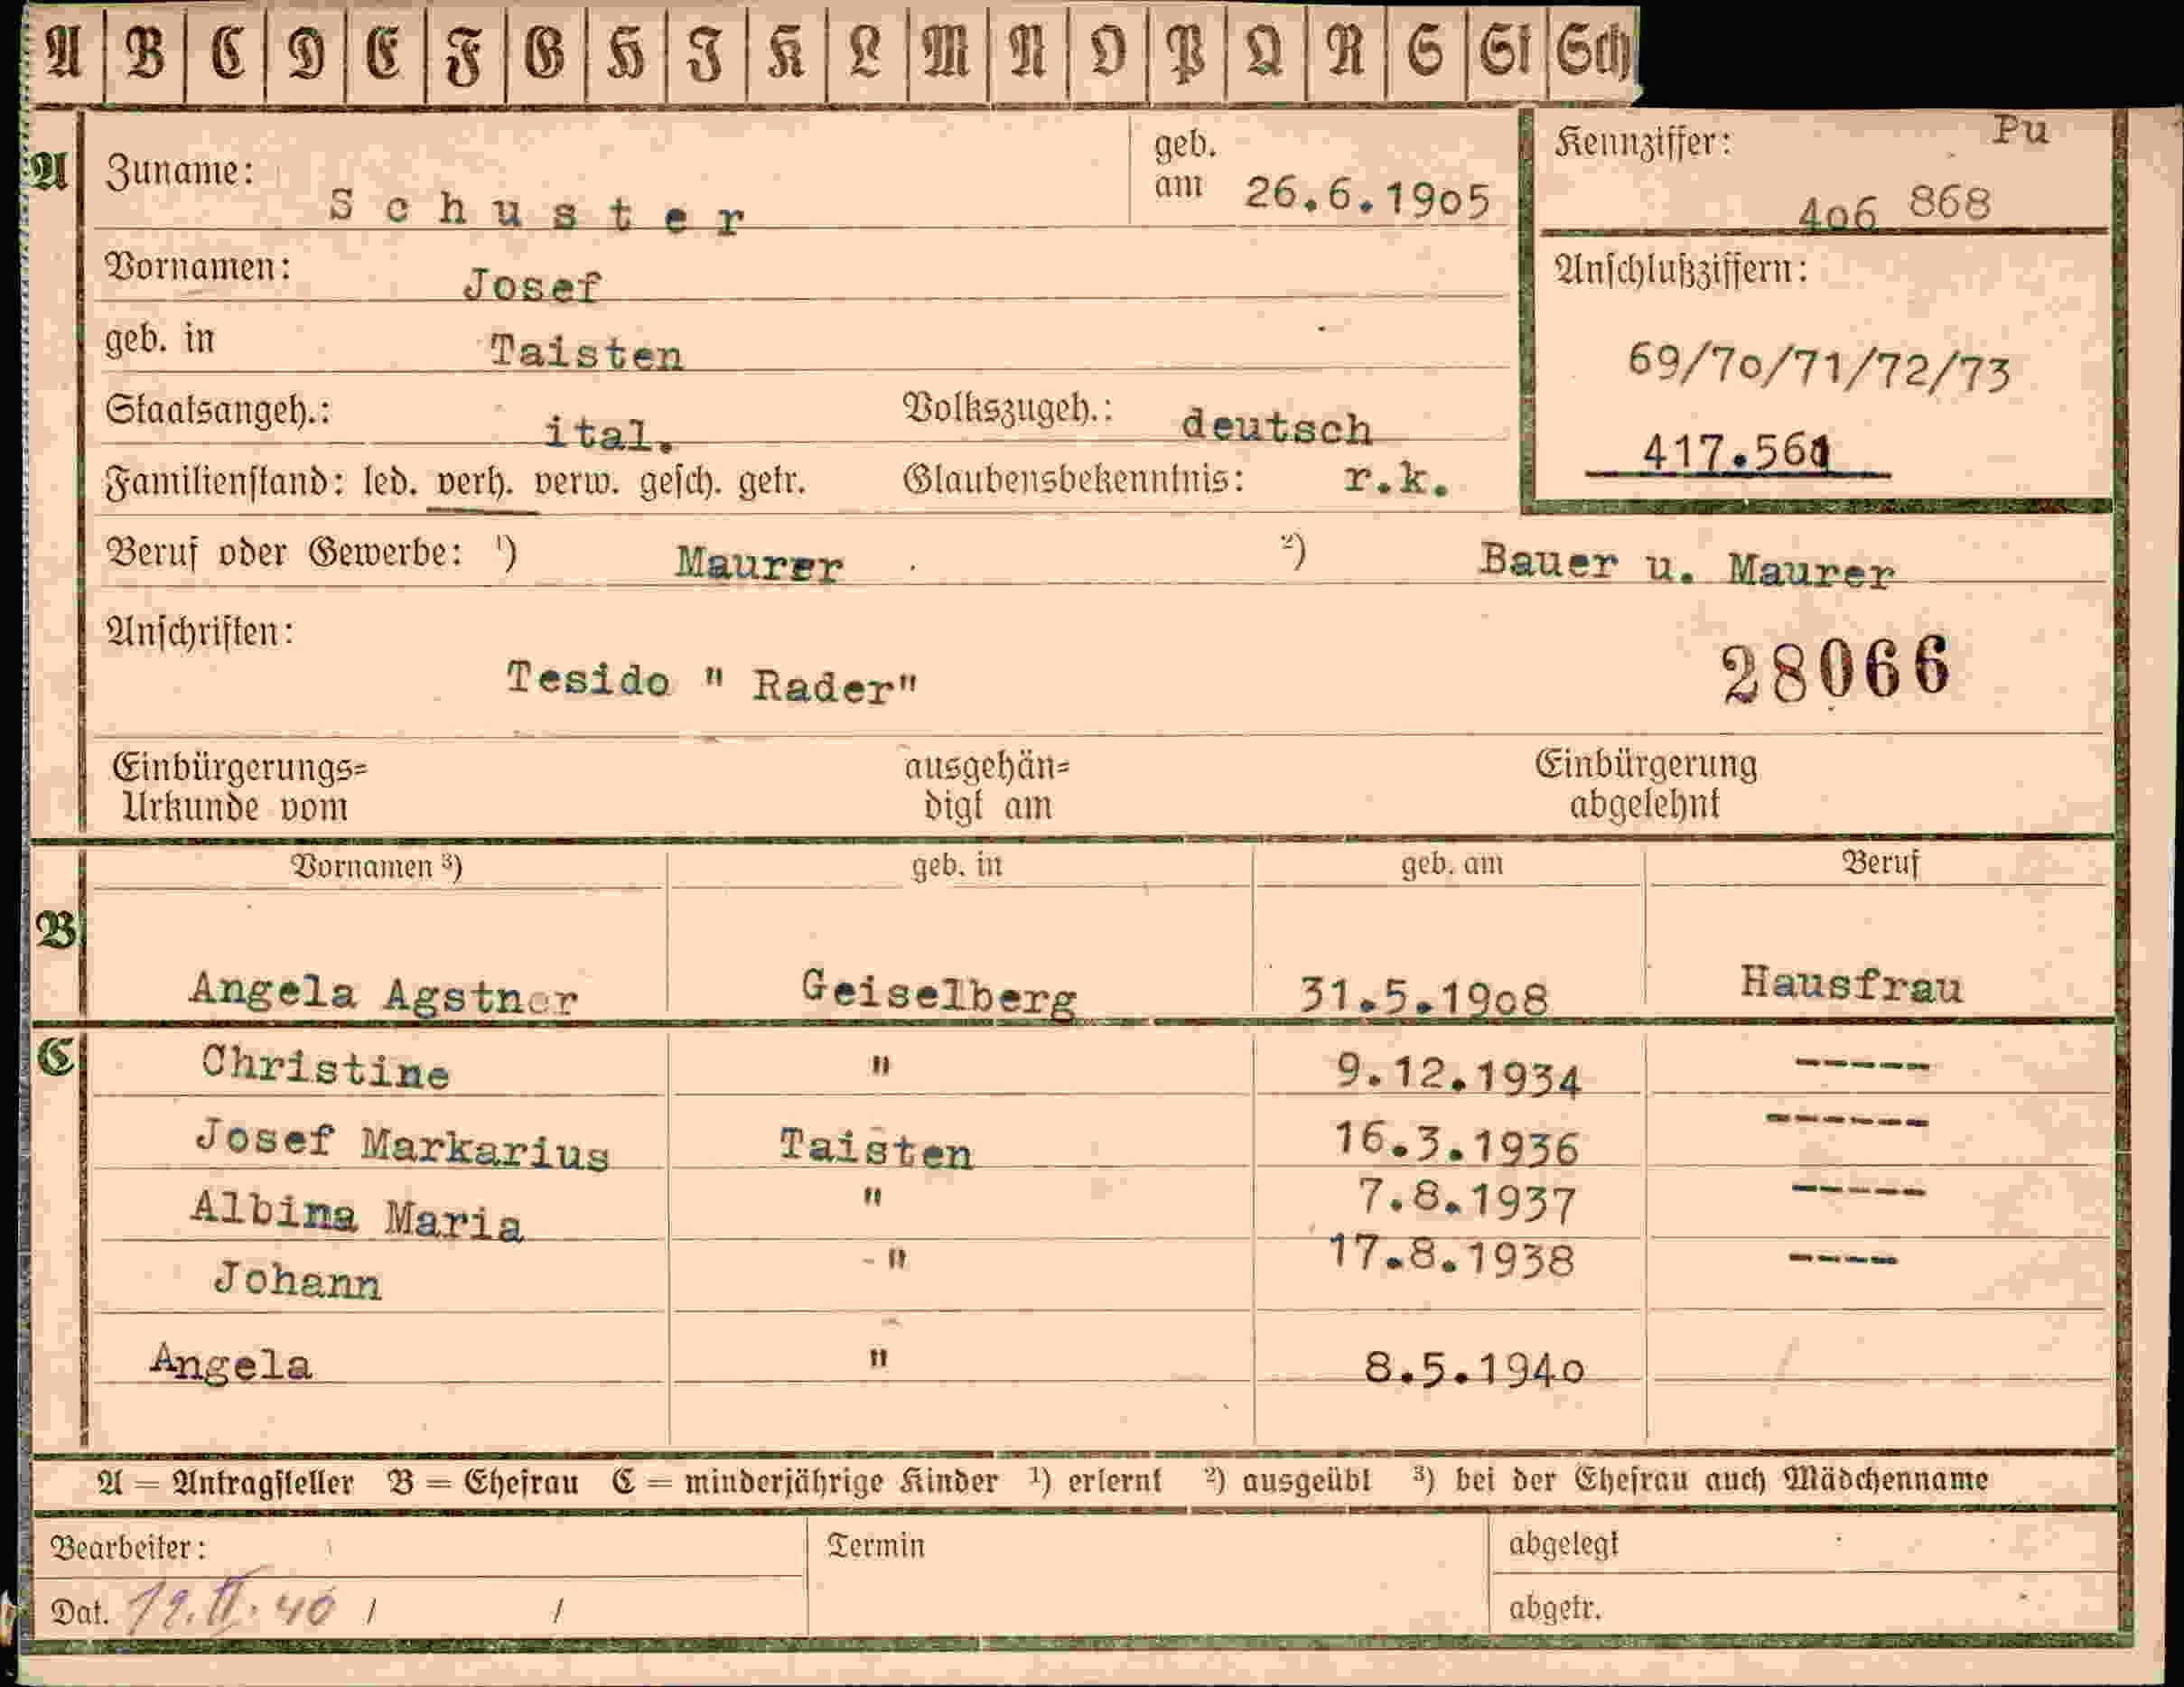 A B C D E F G H I K L M N O P Q R S St Sch
A Zuname: Schuster geb. am 26.6.1905
Kennziffer: Pu
406 868
Vornamen: Josef
Anschlußziffern:
geb. in Taisten
69/70/71/72/73
Staatsangeh.: ital. Volkszugeh.: deutsch
417.561
Familienstand: led. verh. verw. gesch. getr. Glaubensbekenntnis: r.k.
Beruf oder Gewerbe: ¹) Maurer ²) Bauer u. Maurer
Anschriften:
Tesido " Rader" 28066
Einbürgerungs= Urkunde vom ausgehän= digt am Einbürgerung abgelehnt
Vornamen ³) geb. in geb. am Beruf
B
Angela Agstner Geiselberg 31.5.1908 Hausfrau
C Christine " 9.12.1934 -----
Josef Markarius Taisten 16.3.1936 ------
Albina Maria " 7.8.1937 -----
Johann -" 17.8.1938 ----
Angela " 8.5.1940
A = Antragsteller B = Ehefrau C = minderjährige Kinder ¹) erlernt ²) ausgeübt ³) bei der Ehefrau auch Mädchenname
Bearbeiter: Termin abgelegt
Dat. 19.II.40 / / abgetr.